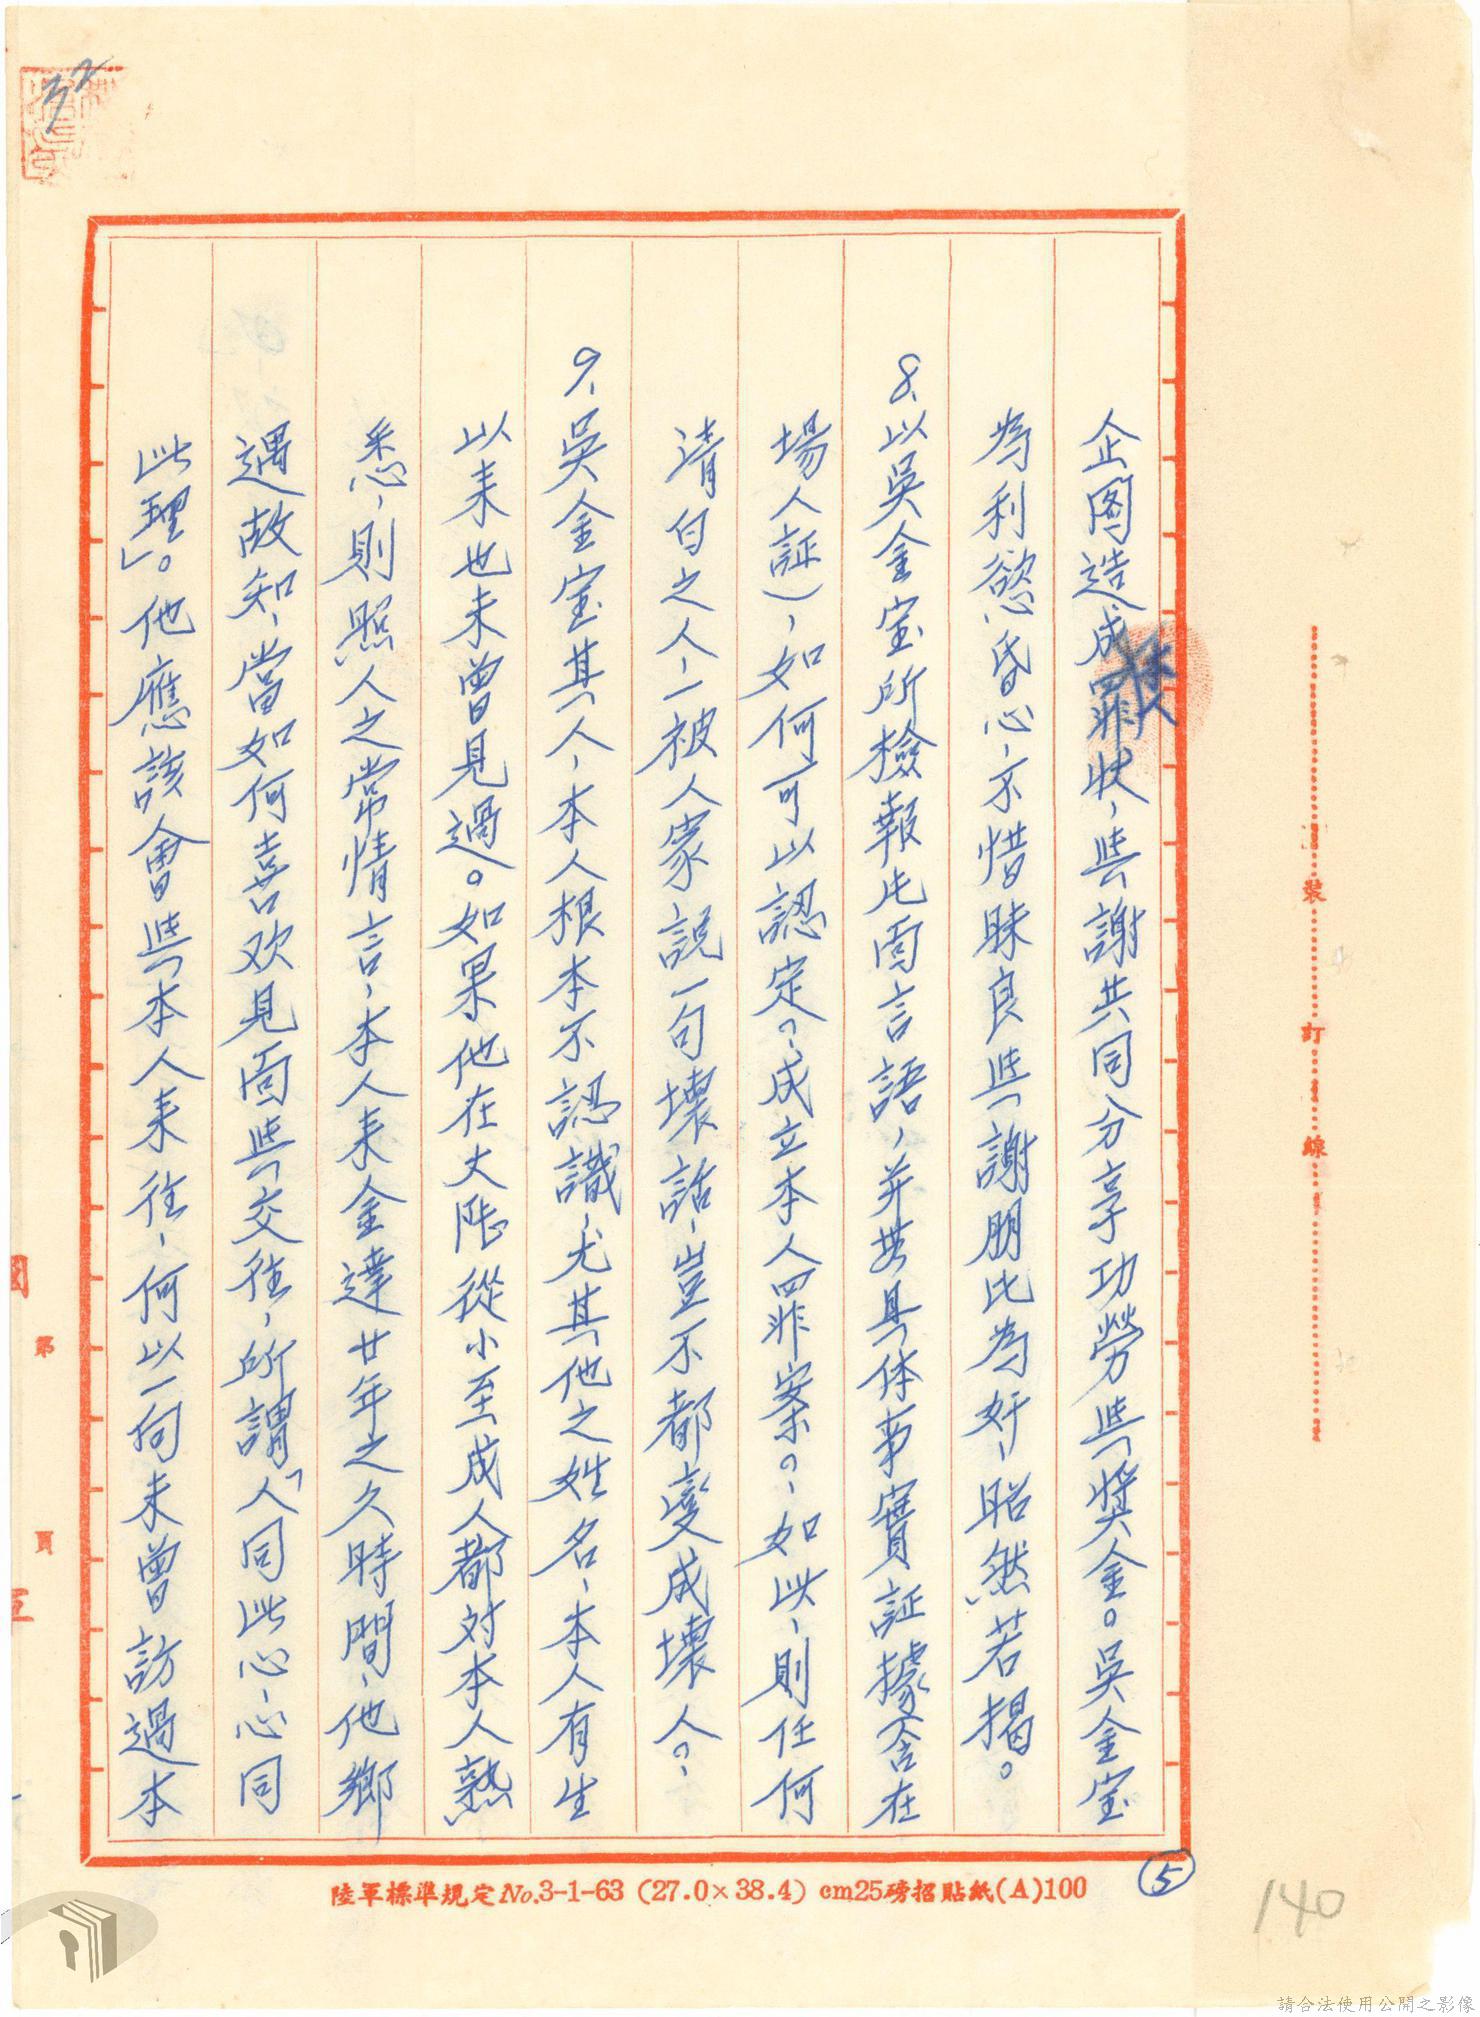 企图造成罪状，与謝共同分享功勞与獎金。吳金宝
為利慾昏心，不惜昧良与謝朋比為奸，昭然若揭。
8.以吳金宝所檢報片面言語，并無具体事實証據（含在
場人証），如何可以認定？成立本人罪案？如此，則任何
清白之人，一被人家說一句壞話，豈不都變成壞人？
9.吳金宝其人，本人根本不認識，尤其他之姓名，本人有生
以来也未曾見過。如果他在大陸從小至成人都对本人熟
悉，則照人之常情言，本人来金達廿年之久時間，他鄉
遇故知，當如何喜欢見面与交往，所謂「人同此心，心同
此理」。他應該會与本人来往，何以一向未曾訪過本
⑤
陸軍標準規定No.3-1-63（27.0×38.4）cm25磅招貼紙(A)100
140
32
裝
訂
線
第
頁
請合法使用公開之影像